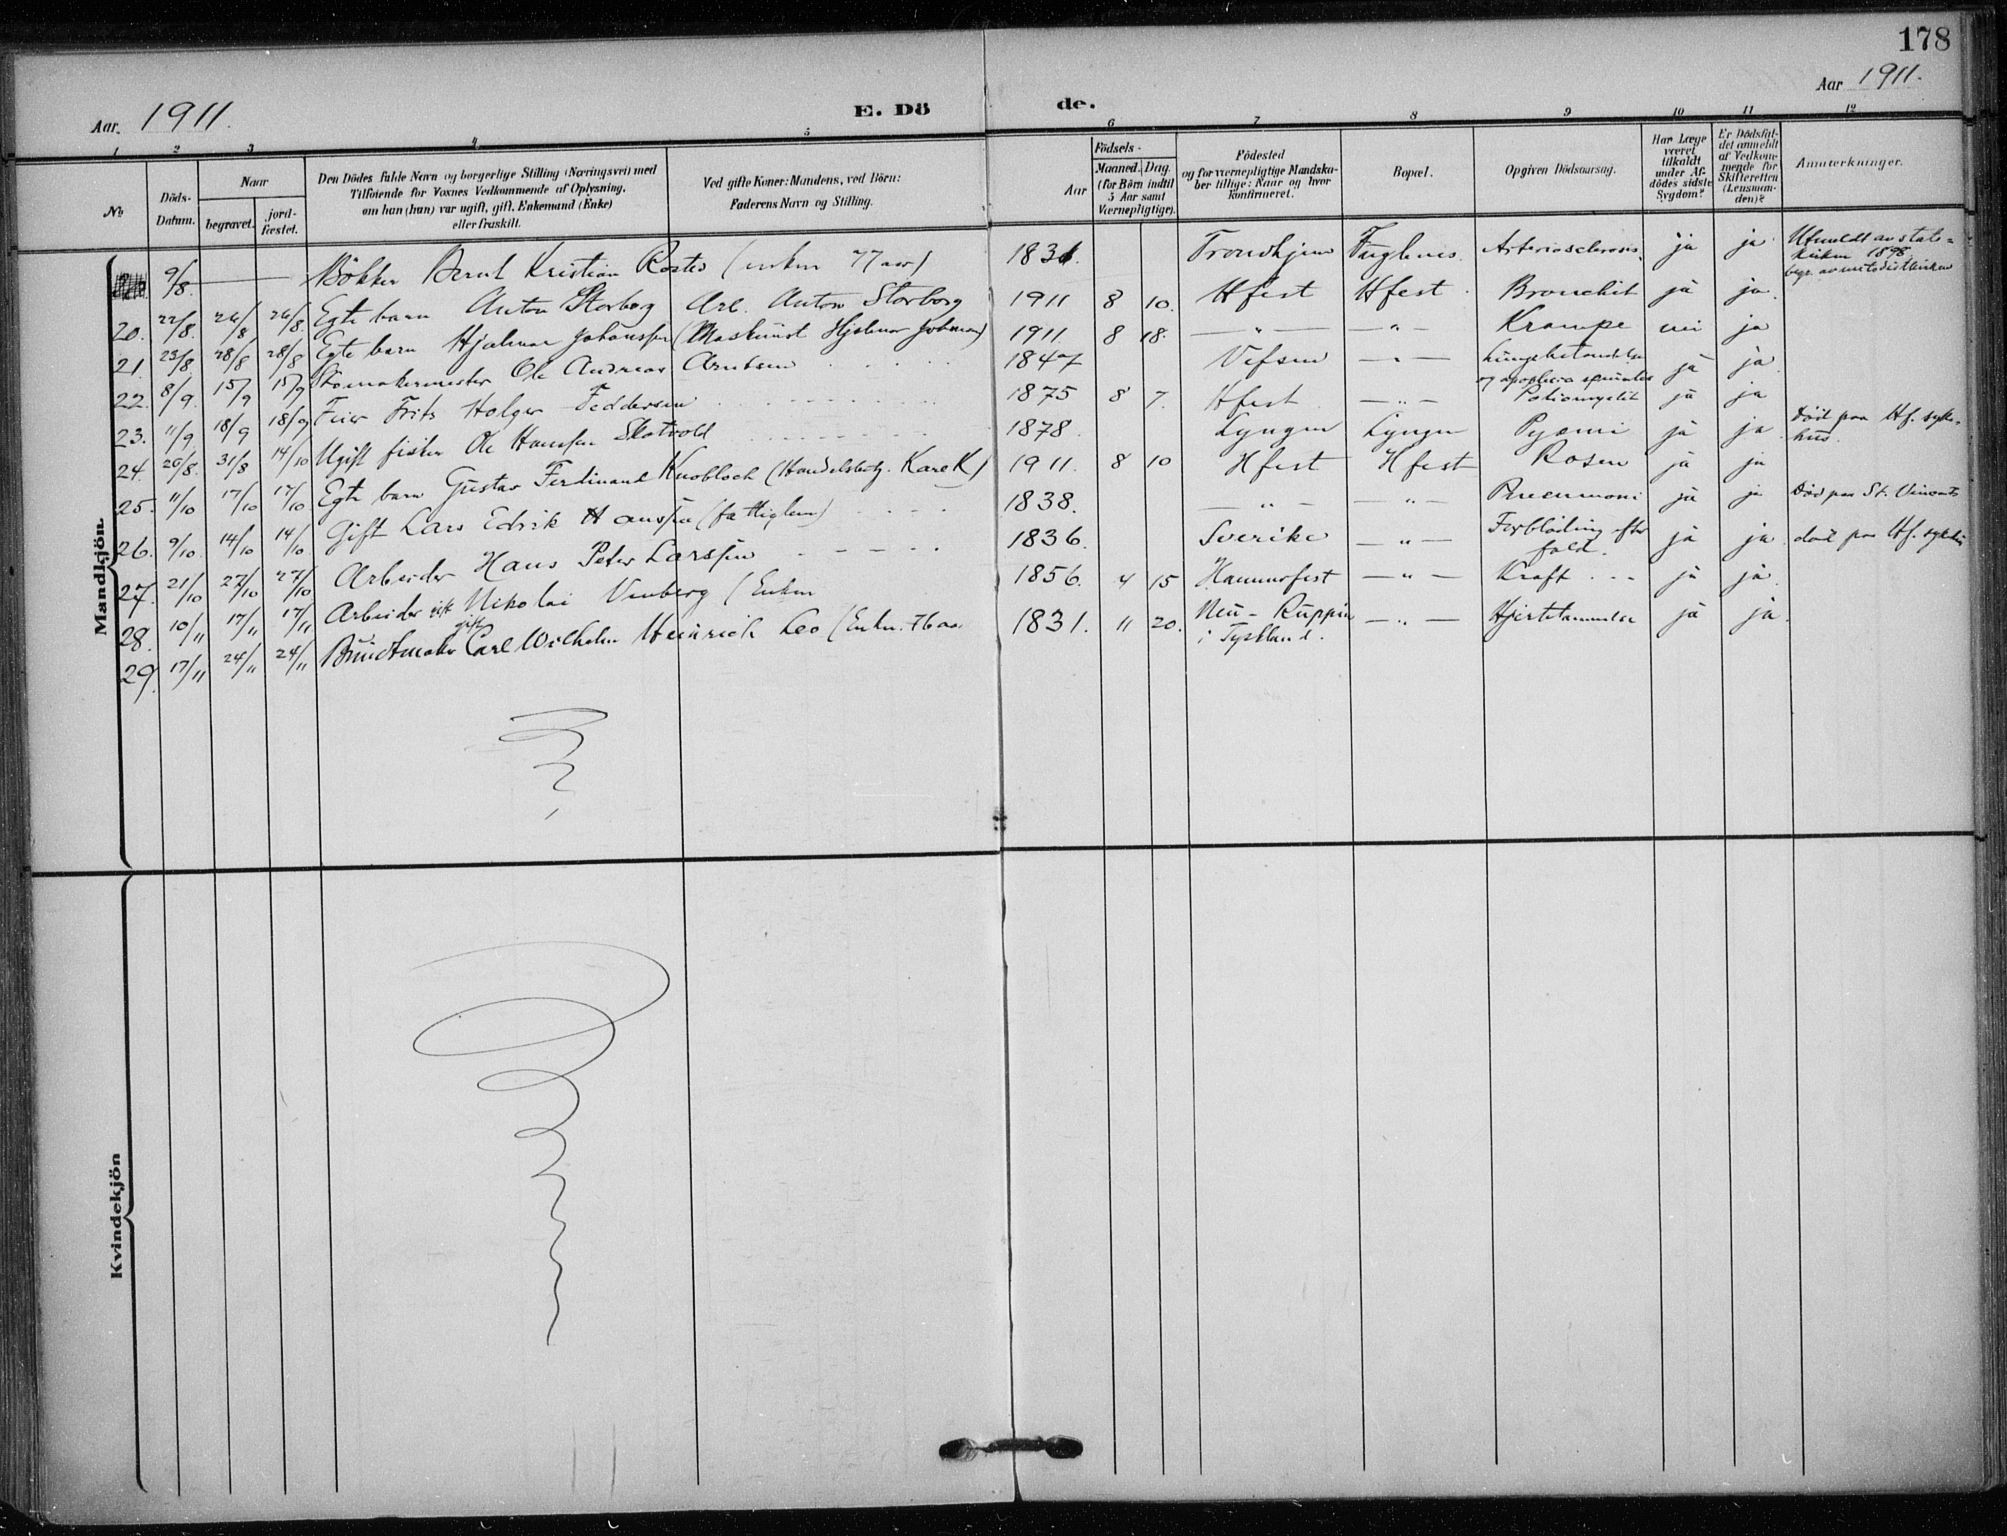 178
Aar 1911. E. Dö de. Aar 1911.
1 2 3 4 5 6 7 8 9 10 11 12
No
Döds-Datum.
Naar
begravet. jord-fæstet.
Den Dödes fulde Navn og borgerlige Stilling (Næringsvei) med
Tilföiende for Voxnes Vedkommende af Oplysning,
om han (hun) var ugift, gift, Enkemand (Enke)
eller fraskilt.
Ved gifte Koner: Mandens, ved Börn:
Faderens Navn og Stilling.
Aar
Födsels-
Maaned. Dag.
(for Börn indtil
5 Aar samt
Værnepligtige).
Födested
og for værnepligtige Mandska-
ber tillige: Naar og hvor
konfirmeret.
Bopæl.
Opgiven Dödsaarsag.
Har Læge
været
tilkaldt
under Af-
dödes sidste
Sygdom?
Er Dödsfal-
det anmeldt
af Vedkom-
mende for
Skifteretten
(Lensman-
den)?
Anmærkninger.
Mandkjön
9/8 Bøkker Bernt Kristian Rosted (enkem 77 aar) 1831. Trondhjem Fuglenes. Arteriosclerosis. ja ja Utmeldt av stats-
kirken 1898,
begr. av metodistkirken
20. 22/8. 26/8 26/8. Egte barn Anton Storborg Arb. Anton Storborg 1911 8 10. Hfest Hfest. Bronchit ja ja.
21. 23/8 28/8 28/8 Egte barn Hjalmar Johanssen (Maskinist Hjalmar Johansen) 1911. 8 18. — " — — " — Krampe nei ja
22. 8/9. 15/9 15/9 Skomakermester Ole Andreas Arntsen 1847 Vefsen — " — Lungebetændelse
og apoplexia spinalis ja ja.
23. 11/9 18/9 18/9 Feier Frits Holger Feddersen 1875 8 7. Hfest — " — Poliomyelit ja ja
24. 26/8. 31/8 14/10 Ugift fisker Ole Hanssen Skotvold 1878 Lyngen Lyngen Pyæmi ja ja Död paa Hf. syke-
hus.
25. 11/10 17/10 17/10 Egte barn Gustav Ferdinand Knobloch (Handelsbetj. Karl K) 1911. 8 10 Hfest Hfest Rosen ja ja
26. 9/10. 14/10 14/10 Gift Lars Edrik Hanssen (fattiglem) 1838. — " — — " — Pneumoni ja ja Död paa St. Vincents
27. 21/10 27/10 27/10 Arbeider Hans Peter Larssen 1836. Sverike — " — Forblödning efter
fald. ja ja. död paa Hf. sykehus
28. 10/11 17/11 17/11 Arbeider gift Nikolai Vinberg (Enkem 1856. 4 15 Hammerfest — " — Kræft ja ja.
29. 17/11 24/11 24/11 Buntmaker gift Carl Wilhelm Heinrich Leo (Enkn. 76 aar 1831. 11 20. Neu-Ruppin
i Tyskland. — " — Hjertelammelse ja ja.
Kvindekjön